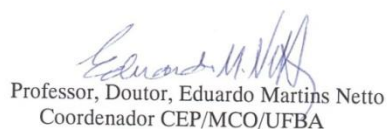 Eduardo M. Netto
Professor, Doutor, Eduardo Martins Netto
Coordenador CEP/MCO/UFBA